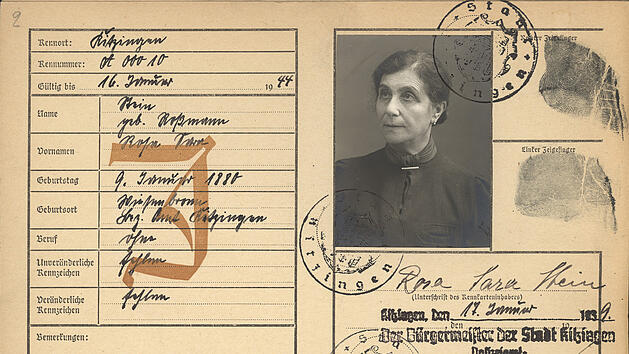 2
Kennort: Kitzingen
Kennummer: A 000 10
Gültig bis 16. Januar 1944
Name Stein
geb. Roßmann
Vornamen Rosa Sara
Geburtstag 9. Januar 1880
Geburtsort Wiesenbronn
Bez. Amt Kitzingen
Beruf ohne
Unveränderliche Kennzeichen fehlen
Veränderliche Kennzeichen fehlen
Bemerkungen:
J
Stadt
Kitzingen
Rechter Zeigefinger
Linker Zeigefinger
Kitzingen
Rosa Sara Stein
(Unterschrift des Kennkarteninhabers)
Kitzingen, den 17. Januar 1939.
den
Der Bürgermeister der Stadt Kitzingen
Stad